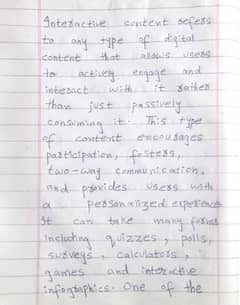 Interactive content refers
to any type of digital
content that allows users
to actively engage and
interact with it rather
than just passively
consuming it. This type
of content encourages
participation, fosters,
two-way communication,
and provides users with
a personalized experience
It can take many forms
including quizzes, polls,
surveys, calculators,
games and interactive
infographics. One of the